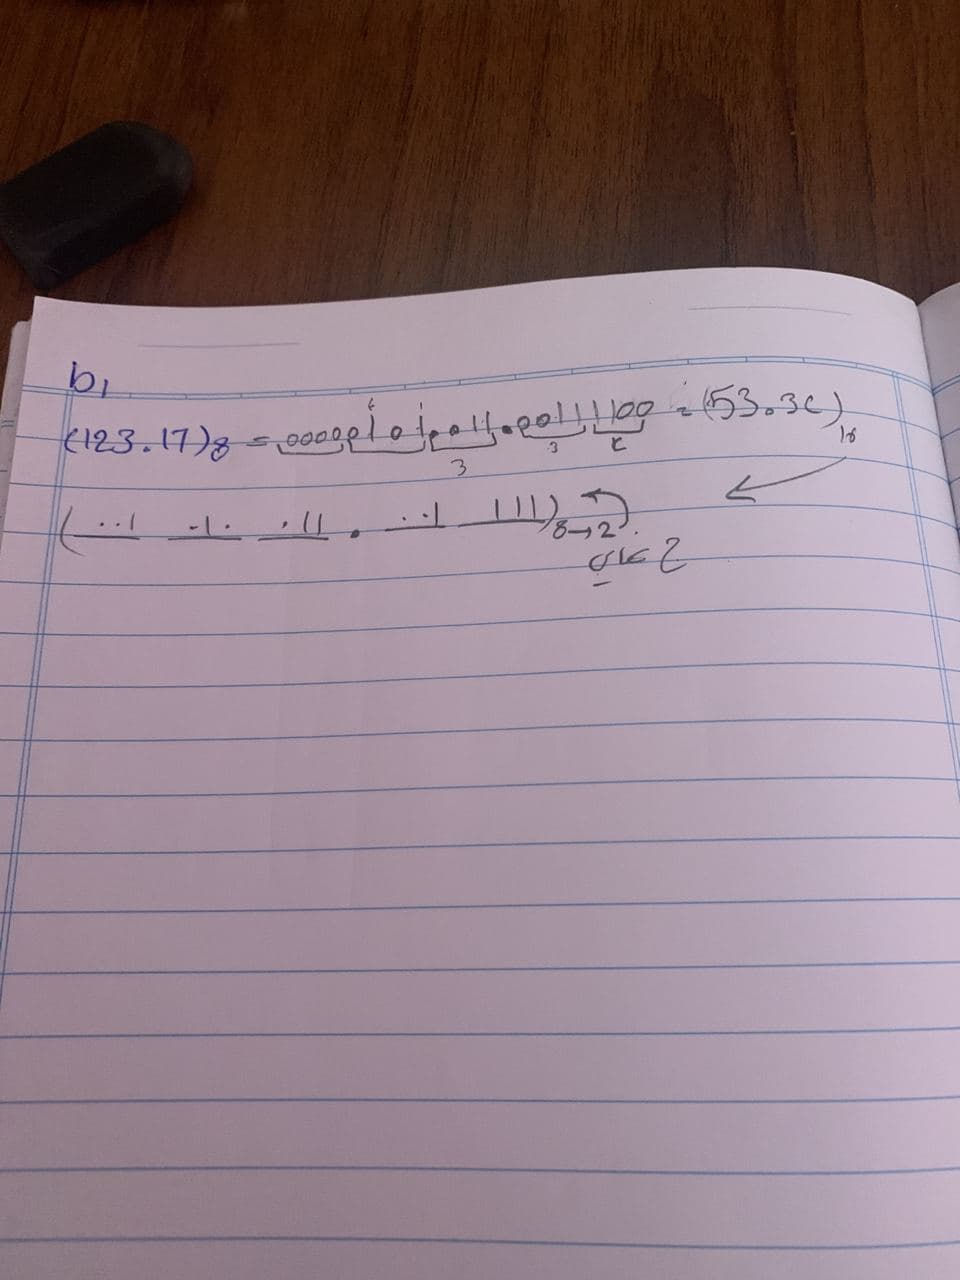 b,
(123.17)8 = 000001010011.00111100 = (53.3C)16
3 3 C
(001 010 011 . 001 111)8→2